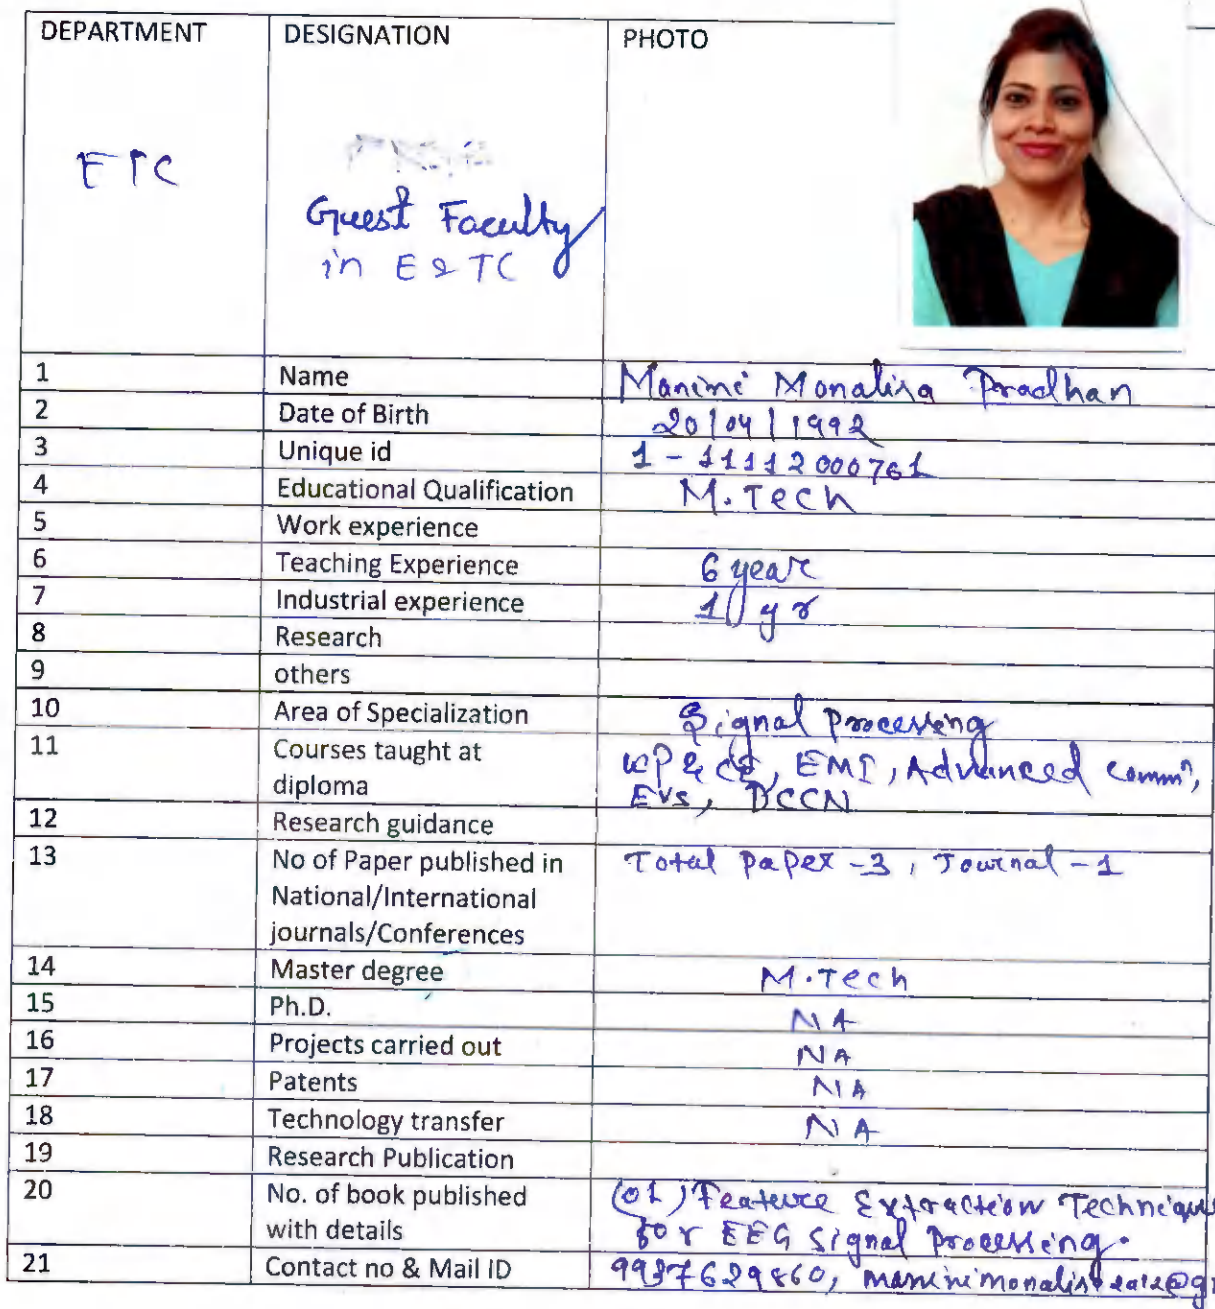 DEPARTMENT DESIGNATION PHOTO
ETC
Guest Faculty
in E&TC
1 Name Manini Monalisa Pradhan
2 Date of Birth 20/04/1992
3 Unique id 1-11112000761
4 Educational Qualification M.Tech
5 Work experience
6 Teaching Experience 6 year
7 Industrial experience 1 yr
8 Research
9 others
10 Area of Specialization Signal Processing
11 Courses taught at
diploma
WP & CE, EMI, Advanced Commn,
EVS, DCCN
12 Research guidance
13 No of Paper published in
National/International
journals/Conferences
Total Paper -3, Journal -1
14 Master degree M.Tech
15 Ph.D. NA
16 Projects carried out NA
17 Patents NA
18 Technology transfer NA
19 Research Publication
20 No. of book published
with details
(01) Feature Extraction Techniques
for EEG Signal Processing.
21 Contact no & Mail ID 9937629860,